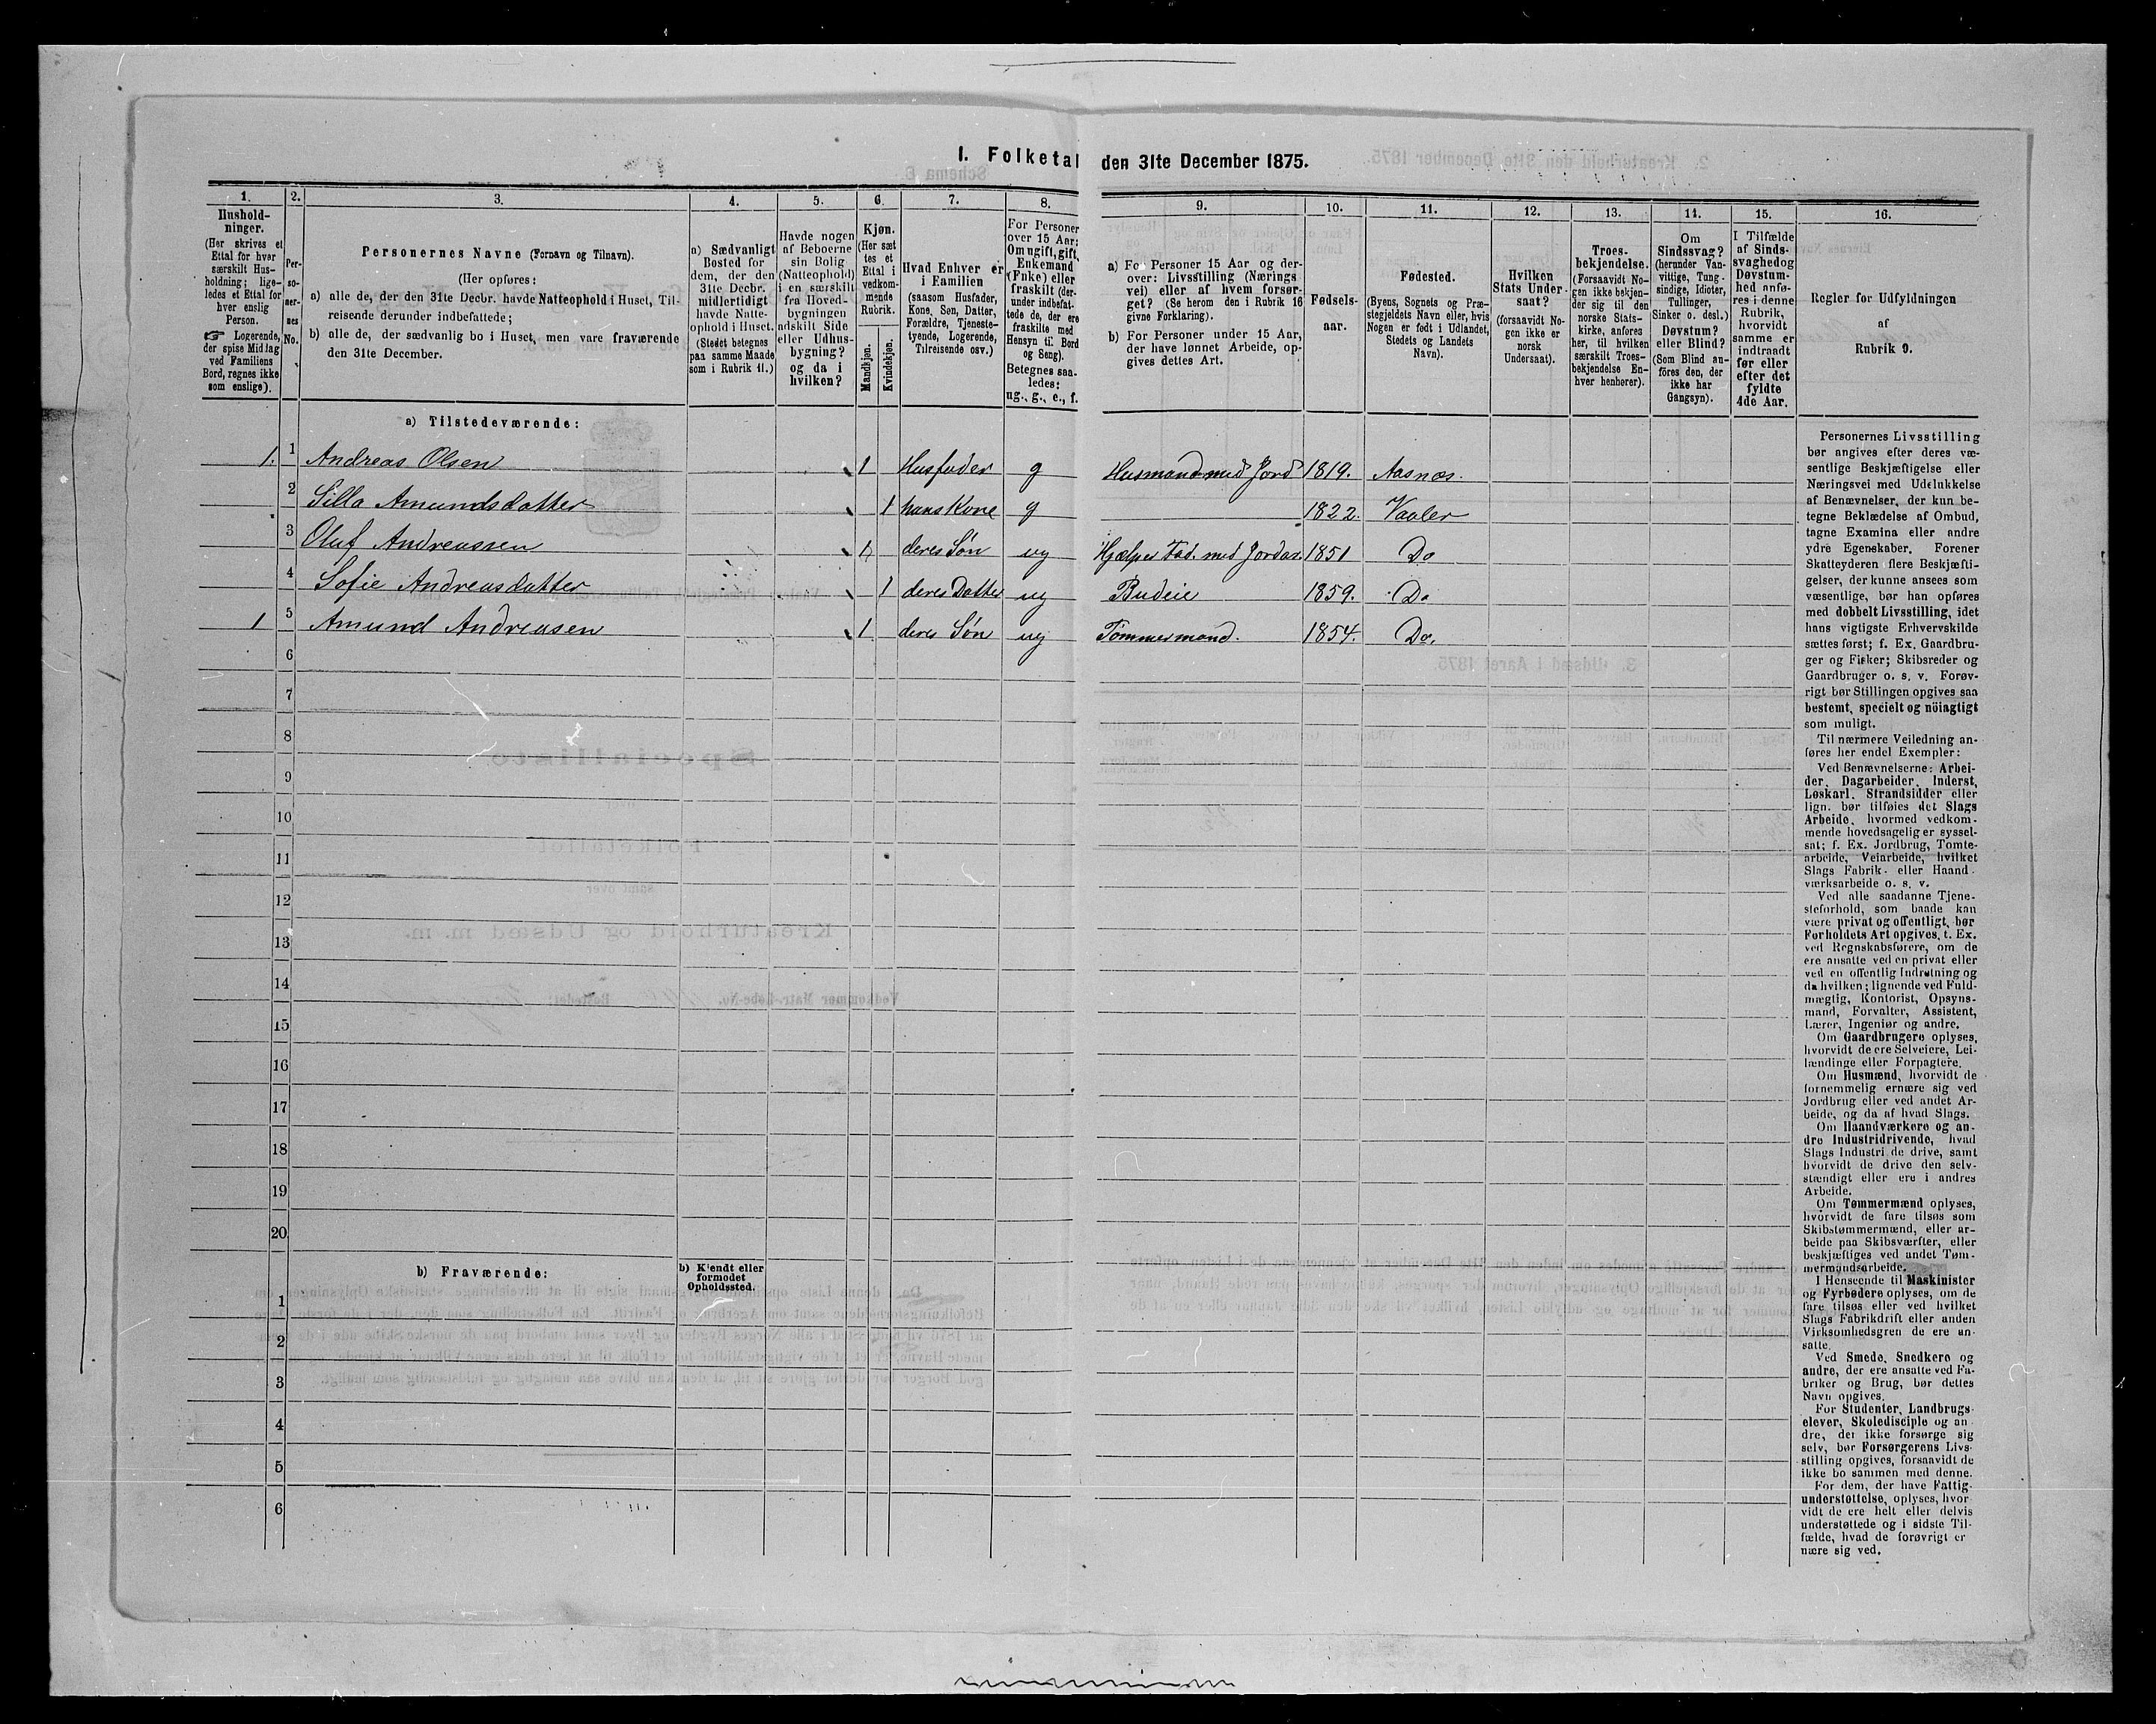 I. Folketal den 31te December 1875.
1.
Hushold-
ninger.
(Her skrives et
Ettal for hver
særskilt Hus-
holdning; lige-
ledes et Ettal for
hver enslig
Person.
☞ Logerende,
der spise Middag
ved Familiens
Bord, regnes ikke
som enslige).
2.
Per-
so-
ner-
nes
No.
3.
Personernes Navne (Fornavn og Tilnavn).
(Her opføres:
a) alle de, der den 31te Decbr. havde Natteophold i Huset, Til-
reisende derunder indbefattede;
b) alle de, der sædvanlig bo i Huset, men vare fraværende
den 31te December.
4.
a) Sædvanligt
Bosted for
dem, der den
31te Decbr.
midlertidigt
havde Natte-
ophold i Huset.
(Stedet betegnes
paa samme Maade
som i Rubrik 11.)
5.
Havde nogen
af Beboerne
sin Bolig
(Natteophold)
i en særskilt
fra Hoved-
bygningen
adskilt Side
eller Udhus-
bygning?
og da i
hvilken?
6.
Kjøn.
(Her sæt
tes et
Ettal i
vedkom-
mende
Rubrik.
Mandkjøn.
Kvindekjøn.
7.
Hvad Enhver er
i Familien
(saasom Husfader,
Kone, Søn, Datter,
Forældre, Tjeneste-
tyende, Logerende,
Tilreisende osv.)
8.
For Personer
over 15 Aar:
Om ugift, gift,
Enkemand
(Enke) eller
fraskilt (der-
under indbefat-
tede de, der ere
fraskilte med
Hensyn til Bord
og Seng).
Betegnes saa-
ledes:
ug., g., e., f.
9.
a) For Personer 15 Aar og der-
over: Livsstilling (Nærings
vei) eller af hvem forsør-
get? (Se herom den i Rubrik 16
givne Forklaring).
b) For Personer under 15 Aar,
der have lønnet Arbeide, op-
gives dettes Art.
10.
Fødsels-
aar.
11.
Fødested.
(Byens, Sognets og Præ-
stegjeldets Navn eller, hvis
Nogen er født i Udlandet,
Stedets og Landets
Navn).
12.
Hvilken
Stats Under-
saat?
(forsaavidt No-
gen ikke er
norsk
Undersaat).
13.
Troes-
bekjendelse.
(Forsaavidt No-
gen ikke bekjen-
der sig til den
norske Stats-
kirke, anføres
her, til hvilken
særskilt Troes-
bekjendelse En-
hver henhører).
14.
Om
Sindssvag?
(herunder Van-
vittige, Tung-
sindige, Idioter,
Tullinger,
Sinker o. desl.)
Døvstum?
eller Blind?
(Som Blind an-
føres den, der
ikke har
Gangsyn).
15.
I Tilfælde
af Sinds-
svaghed og
Døvstum-
hed anfø-
res i denne
Rubrik,
hvorvidt
samme er
indtraadt
før eller
efter det
fyldte
4de Aar.
16.
Regler for Udfyldningen
af
Rubrik 9.
a) Tilstedeværende:
1. 1 Andreas Olsen 1 Husfader g Husmand med Jord 1819. Aasnæs.
2 Silla Amundsdatter 1 hans Kone g 1822. Vaaler
3 Oluf Andreassen 1 deres Søn ug Hjælper Fad. med Jordar. 1851 Do
4 Sofie Andreasdatter 1 deres Datter ug Budeie 1859. Do
1 5 Amund Andreasen 1 deres Søn ug Tømmermand. 1854. Do.
6
7
8
9
10
11
12
13
14
15
16
17
18
19
20
b) Fraværende:
b) Kjendt eller
formodet
Opholdssted.
1
2
3
4
5
6
Personernes Livsstilling
bør angives efter deres væ-
sentlige Beskjæftigelse eller
Næringsvei med Udelukkelse
af Benævnelser, der kun be-
tegne Beklædelse af Ombud,
tagne Examina eller andre
ydre Egenskaber. Forener
Skatteyderen flere Beskjæfti-
gelser, der kunne ansees som
væsentlige, bør han opføres
med dobbelt Livsstilling, idet
hans vigtigste Erhvervskilde
sættes først; f. Ex. Gaardbru-
ger og Fisker; Skibsreder og
Gaardbruger o. s. v. Forøv-
rigt bør Stillingen opgives saa
bestemt, specielt og nöiagtigt
som muligt.
Til nærmere Veiledning an-
føres her endel Exempler:
Ved Benævnelserne: Arbei-
der, Dagarbeider, Inderst,
Løskarl, Strandsidder eller
lign. bør tilføies det Slags
Arbeide, hvormed vedkom-
mende hovedsagelig er syssel-
sat; f. Ex. Jordbrug, Tomte-
arbeide, Veiarbeide, hvilket
Slags Fabrik- eller Haand-
værksarbeide o. s. v.
Ved alle saadanne Tjene-
steforhold, som baade kan
være privat og offentligt, bør
Forholdets Art opgives, t. Ex.
ved Regnskabsførere, om de
ere ansatte ved en privat eller
ved en offentlig Indretning og
da hvilken; lignende ved Fuld-
mægtig, Kontorist, Opsyns-
mand, Forvalter, Assistent,
Lærer, Ingeniør og andre.
Om Gaardbrugere oplyses,
hvorvidt de ere Selveiere, Lei-
lændinge eller Forpagtere.
Om Husmænd, hvorvidt de
fornemmelig ernære sig ved
Jordbrug eller ved andet Ar-
beide, og da af hvad Slags.
Om Haandværkere og an-
dre Industridrivende, hvad
Slags Industri de drive, samt
hvorvidt de drive den selv-
stændigt eller ere i andres
Arbeide.
Om Tømmermænd oplyses,
hvorvidt de fare tilsøs som
Skibstømmermænd, eller ar-
beide paa Skibsværfter, eller
beskjæftiges ved andet Tøm-
mermandsarbeide.
I Henseende til Maskinister
og Fyrbødere oplyses, om de
fare tilsøs eller ved hvilket
Slags Fabrikdrift eller anden
Virksomhedsgren de ere an-
satte.
Ved Smede, Snedkere og
andre, der ere ansatte ved Fa-
briker og Brug, bør dettes
Navn opgives.
For Studenter, Landbrugs-
elever, Skoledisciple og an
dre, der ikke forsørge sig
selv, bør Forsørgerens Livs-
stilling opgives, forsaavidt de
ikke bo sammen med denne.
For dem, der have Fattig-
understøttelse, oplyses, hvor
vidt de ere helt eller delvis
understøttede og i sidste Til-
fælde, hvad de forøvrigt er
nære sig ved.